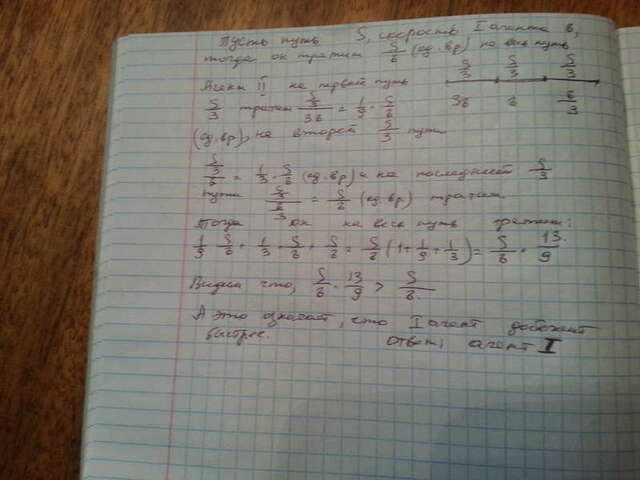 Пусть путь S, скорость I агента в,
тогда он тратит S/в (ед.вр) на весь путь
S/3 S/3 S/3
Агент II на первый путь
3в в в/3
S/3 тратит (S/3)/3в = 1/9 · S/в
(ед.вр), на второй S/3 пути
(S/3)/в = 1/3 · S/в (ед.вр) и на последней S/3
пути (S/3)/(в/3) = S/в (ед.вр) тратит
Тогда он на весь путь тратит:
1/9 S/в + 1/3 S/в + S/в = S/в (1 + 1/9 + 1/3) = S/в · 13/9
Видим что, S/в · 13/9 > S/в.
А это означает, что I агент добежит
быстрее. Ответ: агент I